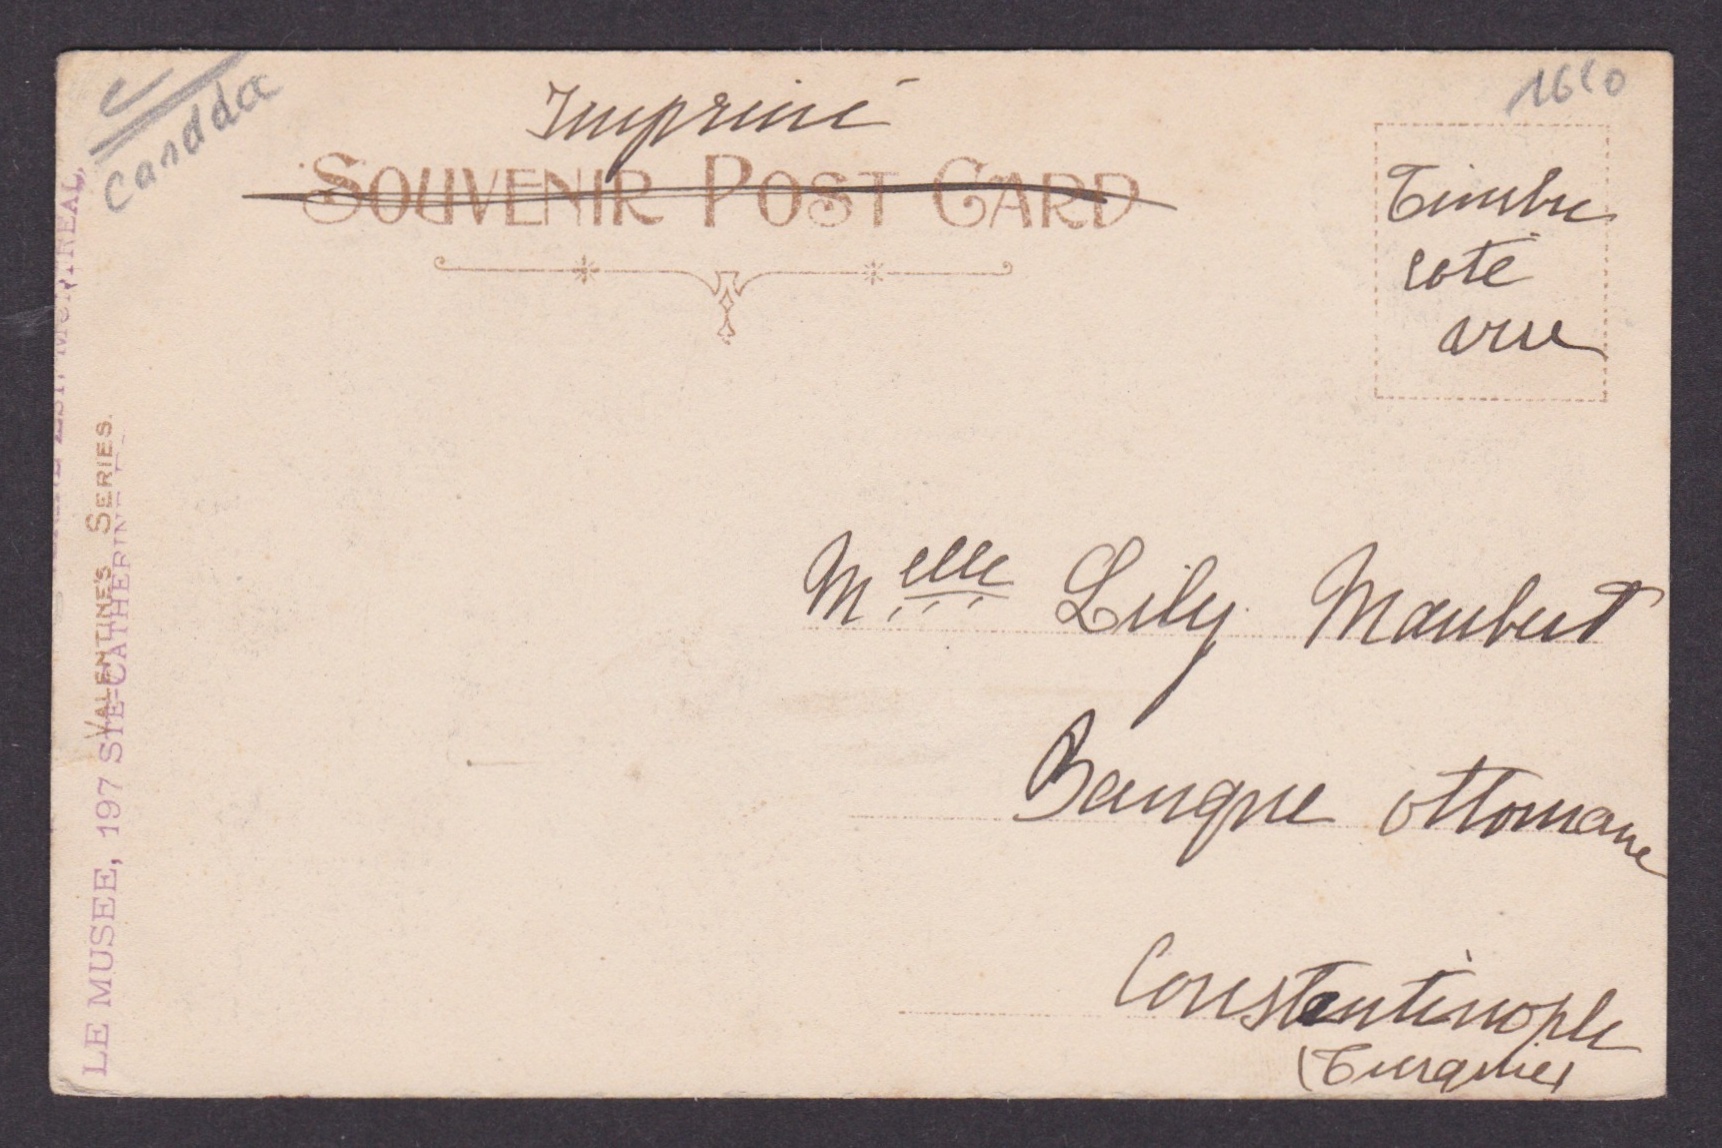 Canada
1610
Imprimé
SOUVENIR POST CARD
Timbre
coté
vue
Melle Lily Maubert
Banque Ottomane
Constantinople
(Turquie)
VALENTINE'S SERIES.
LE MUSEE, 197 STE-CATHERINE EST, MONTREAL,